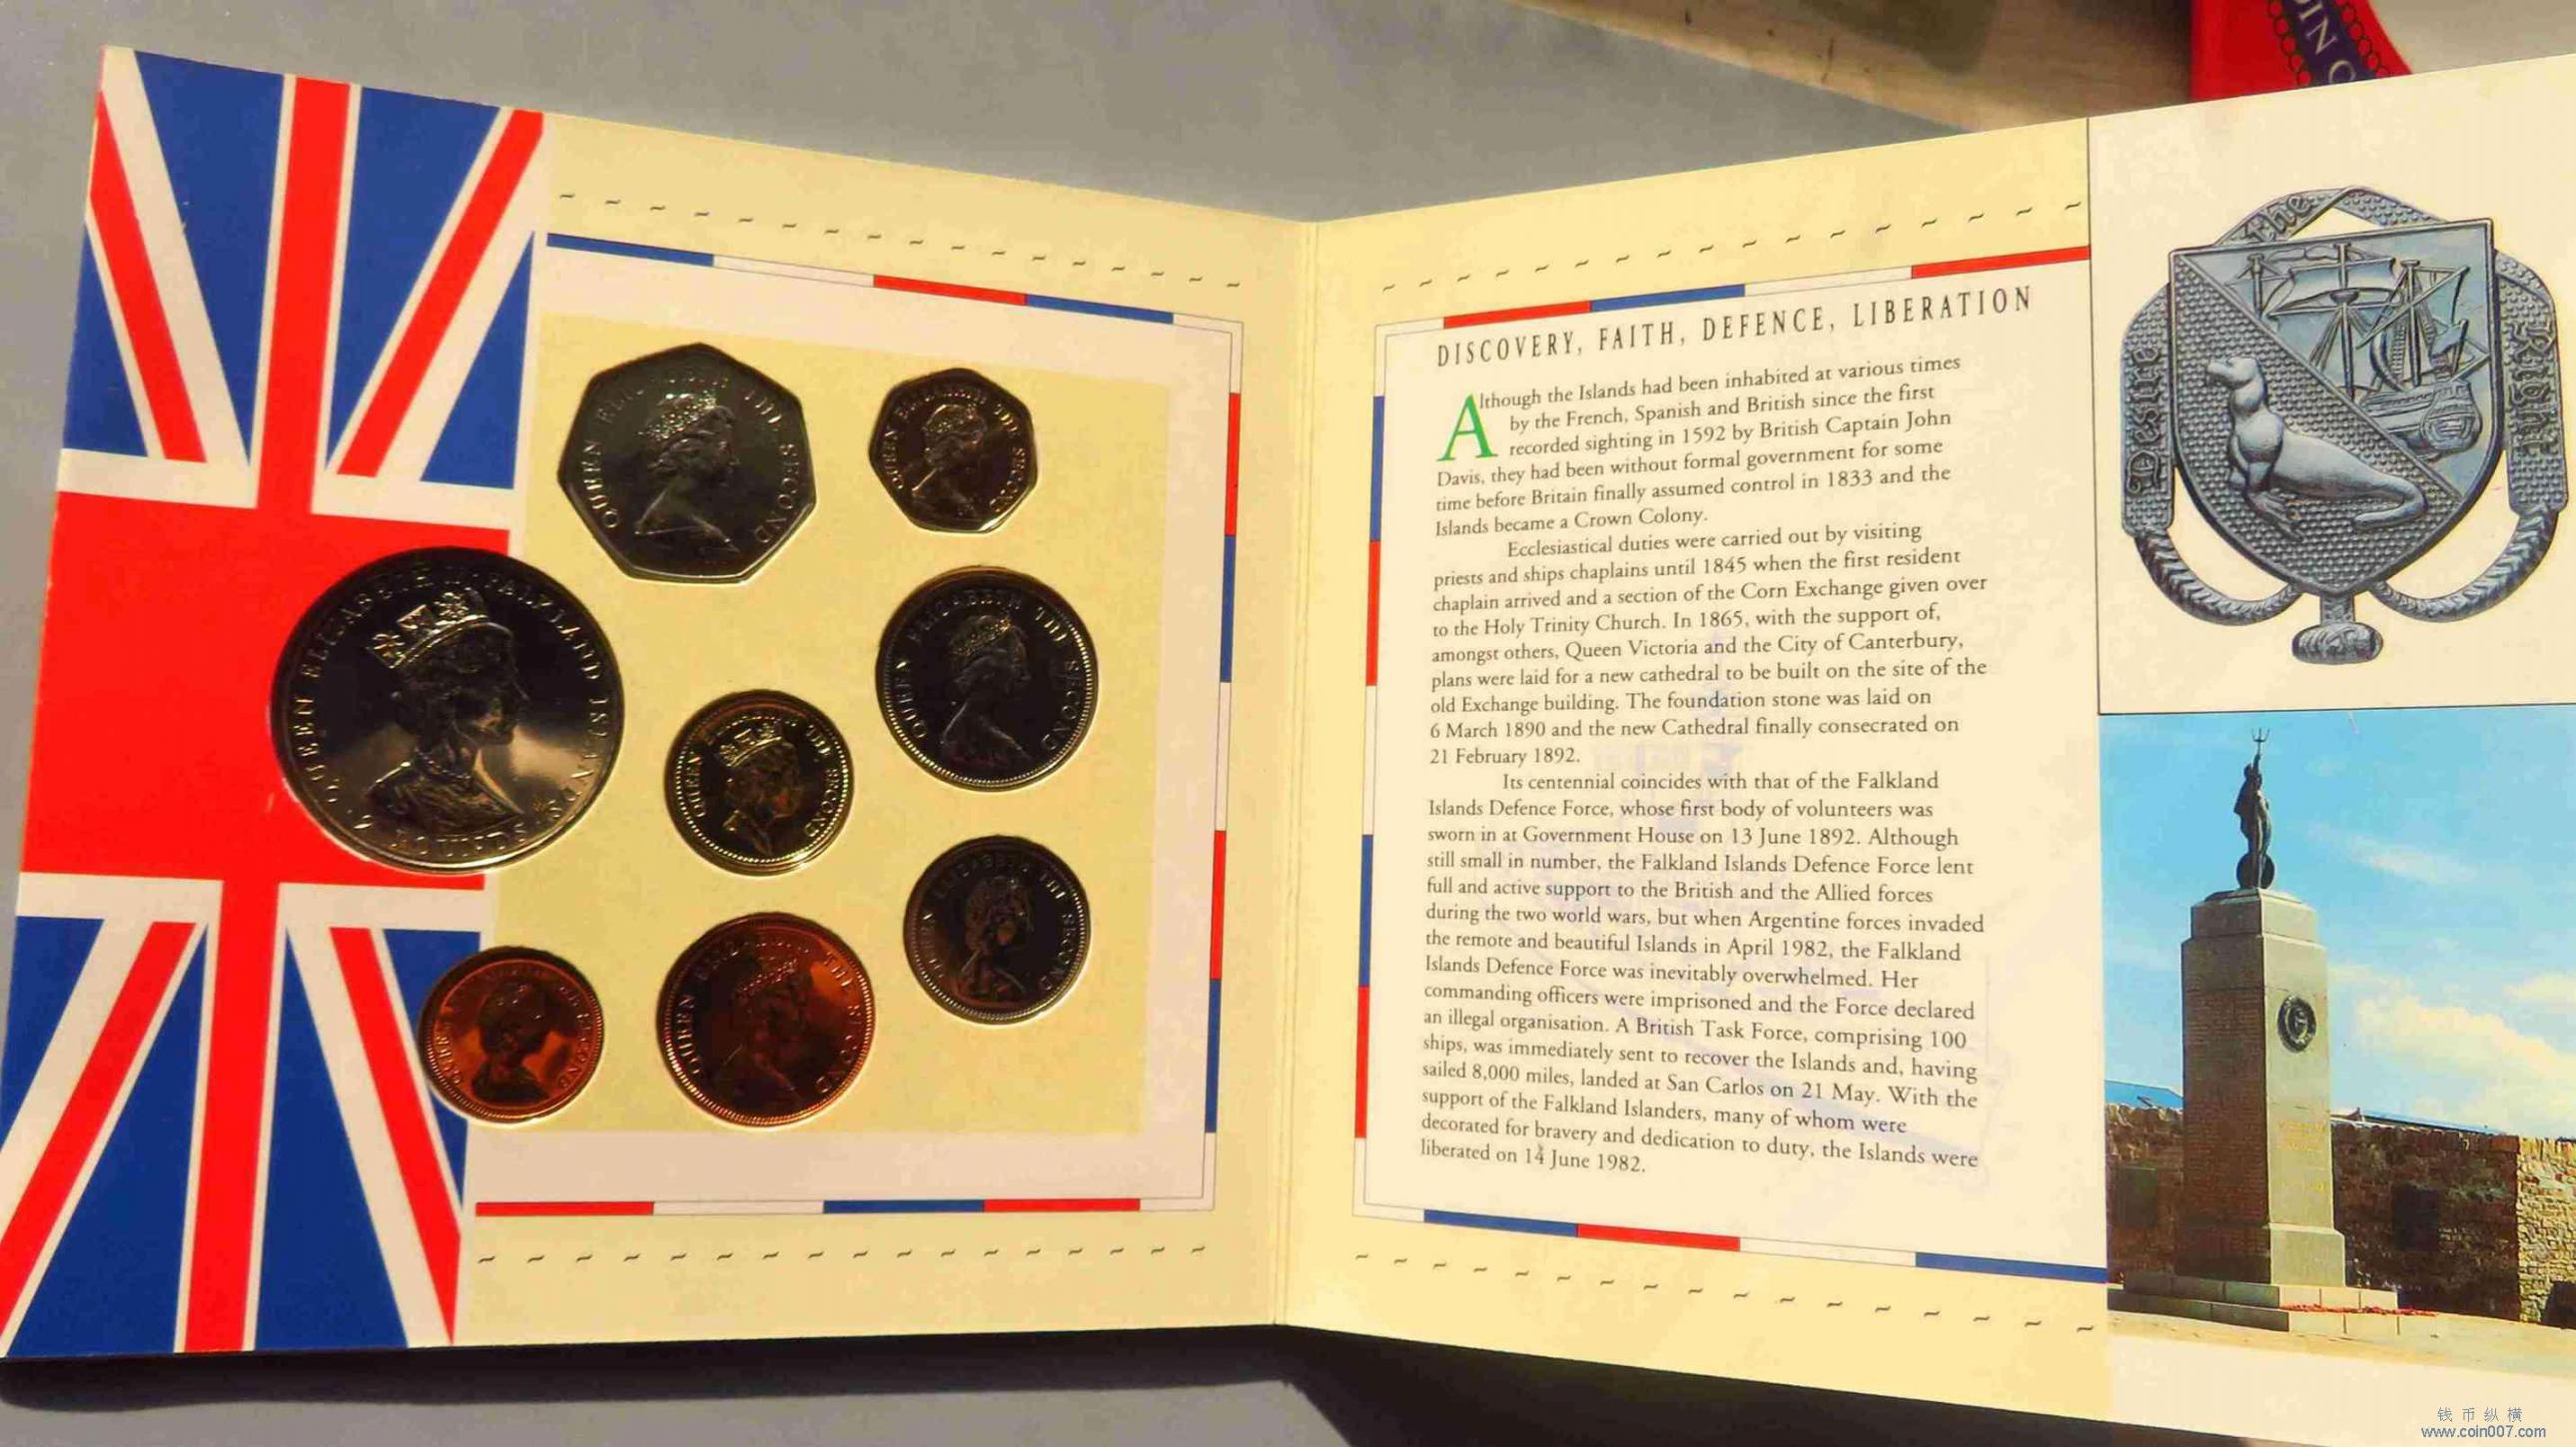 QUEEN ELIZABETH THE SECOND
QUEEN ELIZABETH THE SECOND
QUEEN ELIZABETH II FALKLAND ISLANDS
POUNDS
QUEEN ELIZABETH THE SECOND
QUEEN THE SECOND
QUEEN ELIZABETH THE SECOND
QUEEN ELIZABETH THE SECOND
DISCOVERY, FAITH, DEFENCE, LIBERATION
Although the Islands had been inhabited at various times
by the French, Spanish and British since the first
recorded sighting in 1592 by British Captain John
Davis, they had been without formal government for some
time before Britain finally assumed control in 1833 and the
Islands became a Crown Colony.
Ecclesiastical duties were carried out by visiting
priests and ships chaplains until 1845 when the first resident
chaplain arrived and a section of the Corn Exchange given over
to the Holy Trinity Church. In 1865, with the support of,
amongst others, Queen Victoria and the City of Canterbury,
plans were laid for a new cathedral to be built on the site of the
old Exchange building. The foundation stone was laid on
6 March 1890 and the new Cathedral finally consecrated on
21 February 1892.
Its centennial coincides with that of the Falkland
Islands Defence Force, whose first body of volunteers was
sworn in at Government House on 13 June 1892. Although
still small in number, the Falkland Islands Defence Force lent
full and active support to the British and the Allied forces
during the two world wars, but when Argentine forces invaded
the remote and beautiful Islands in April 1982, the Falkland
Islands Defence Force was inevitably overwhelmed. Her
commanding officers were imprisoned and the Force declared
an illegal organisation. A British Task Force, comprising 100
ships, was immediately sent to recover the Islands and, having
sailed 8,000 miles, landed at San Carlos on 21 May. With the
support of the Falkland Islanders, many of whom were
decorated for bravery and dedication to duty, the Islands were
liberated on 14 June 1982.
Desire The Right
钱币纵横
www.coin007.com